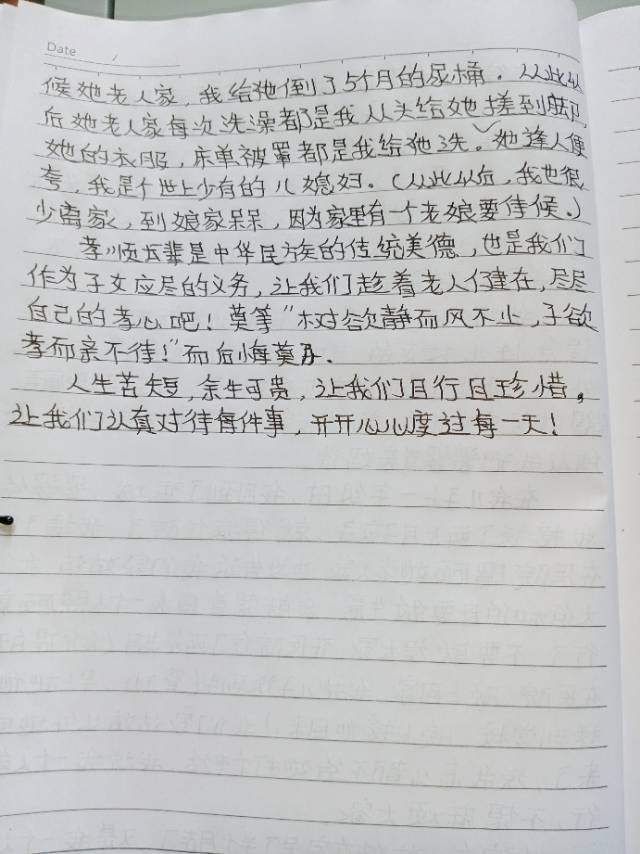 Date /
候她老人家，我给她倒了5个月的尿桶．从此以
后她老人家每次洗澡都是我从头给她搓到脚，
她的衣服，床单被罩都是我给她洗。她逢人便
夸，我是个世上少有的儿媳妇．（从此以后，我也很
少离家，到娘家呆呆，因为家里有一个老娘要侍候．）
孝顺长辈是中华民族的传统美德，也是我们
作为子女应尽的义务，让我们趁着老人们健在，尽尽
自己的孝心吧！莫等“树欲静而风不止，子欲
孝而亲不待！”而后悔莫及．
人生苦短，余生可贵，让我们且行且珍惜。
让我们认真对待每件事，开开心心度过每一天！